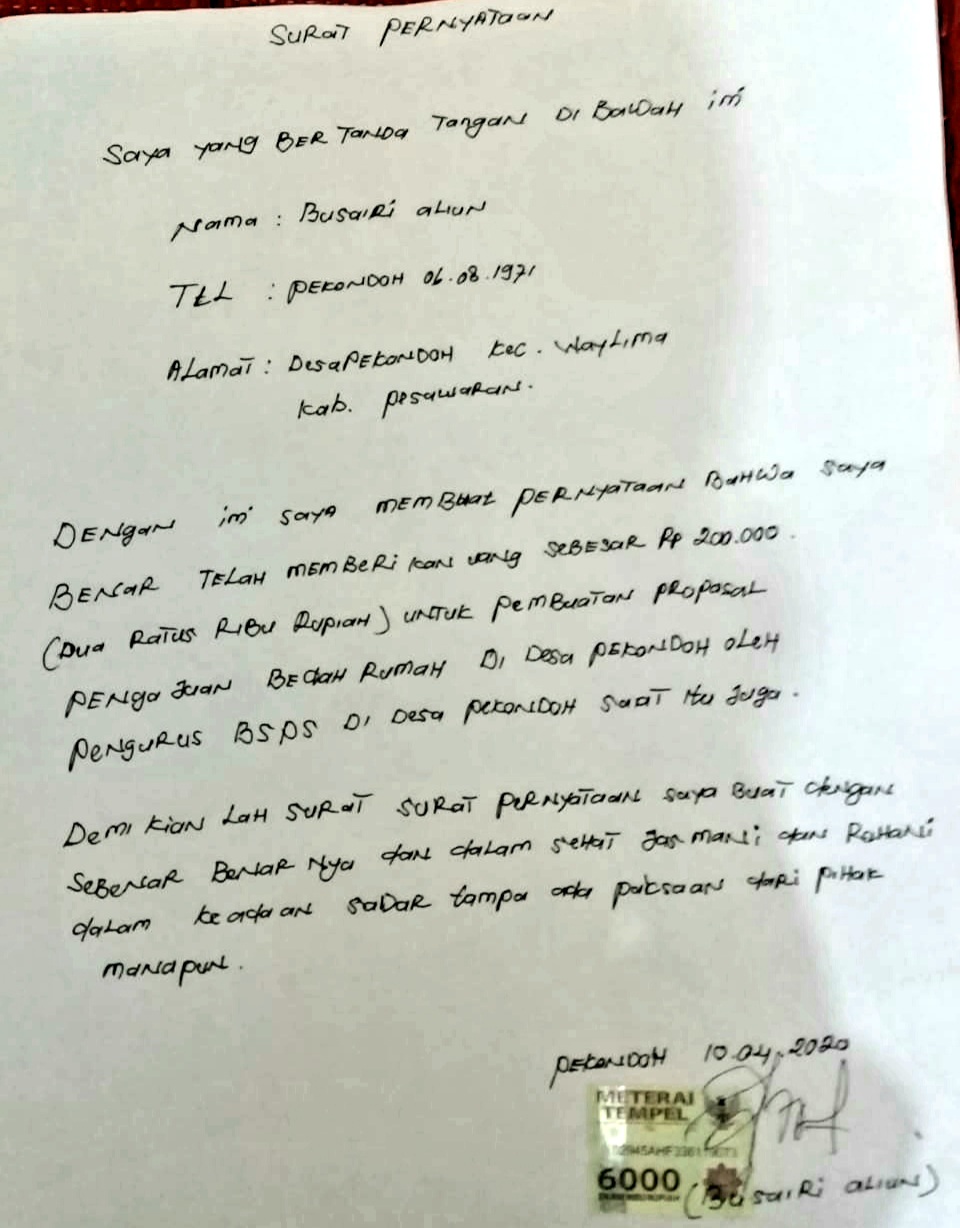 SURAT PERNYATAAN
Saya yang BERTANDA Tangan DI BaWaH ini
Nama : BusaiRi aLiUN
TtL : PEKONDOH 06.08.1971
ALamaT : DesaPEKONDOH Kec. WayLima
Kab. PesawaRan.
DENgan ini saya MEMBUat PERNYaTaaN BaHWa saya
BENaR TELaH MEMBeRikan uang SEBESaR Rp 200.000.
(Dua RaTus RiBu Rupiah) UNTUK PEMBuaTaN PROPosaL
PENgaJuan BEdaH RumaH Di Desa PEKONDOH oLeH
PENguRus BSPS Di Desa PEKONDOH SaaT itu Juga.
Demi Kian LaH SURaT SURaT PERNYaTaaN saya BuaT dengan
SeBENaR BENaR Nya dan dalam seHaT JasmaNi dan RoHaNi
daLam keadaan saDaR tampa ada paksaan dari piHak
maNapuN.
PEKONDOH 10.04.2020
METERAI
TEMPEL
6000
(BusaiRi aLiUN)